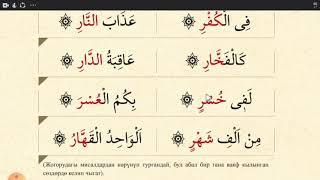 فِى الْكُفْرِ ۞ عَذَابَ النَّارِ ۞
كَالْفَخَّارِ ۞ عَاقِبَةُ الدَّارِ ۞
لَفِى خُسْرٍ ۞ بِكُمُ الْعُسْرَ ۞
مِنْ اَلْفِ شَهْرٍ ۞ اَلْوَاحِدُ الْقَهَّارُ ۞
(Жогорудагы мисалдардан көрүнүп тургандай, бул абал бир гана вакф кылынган
сөздөрдө келип чыгат).